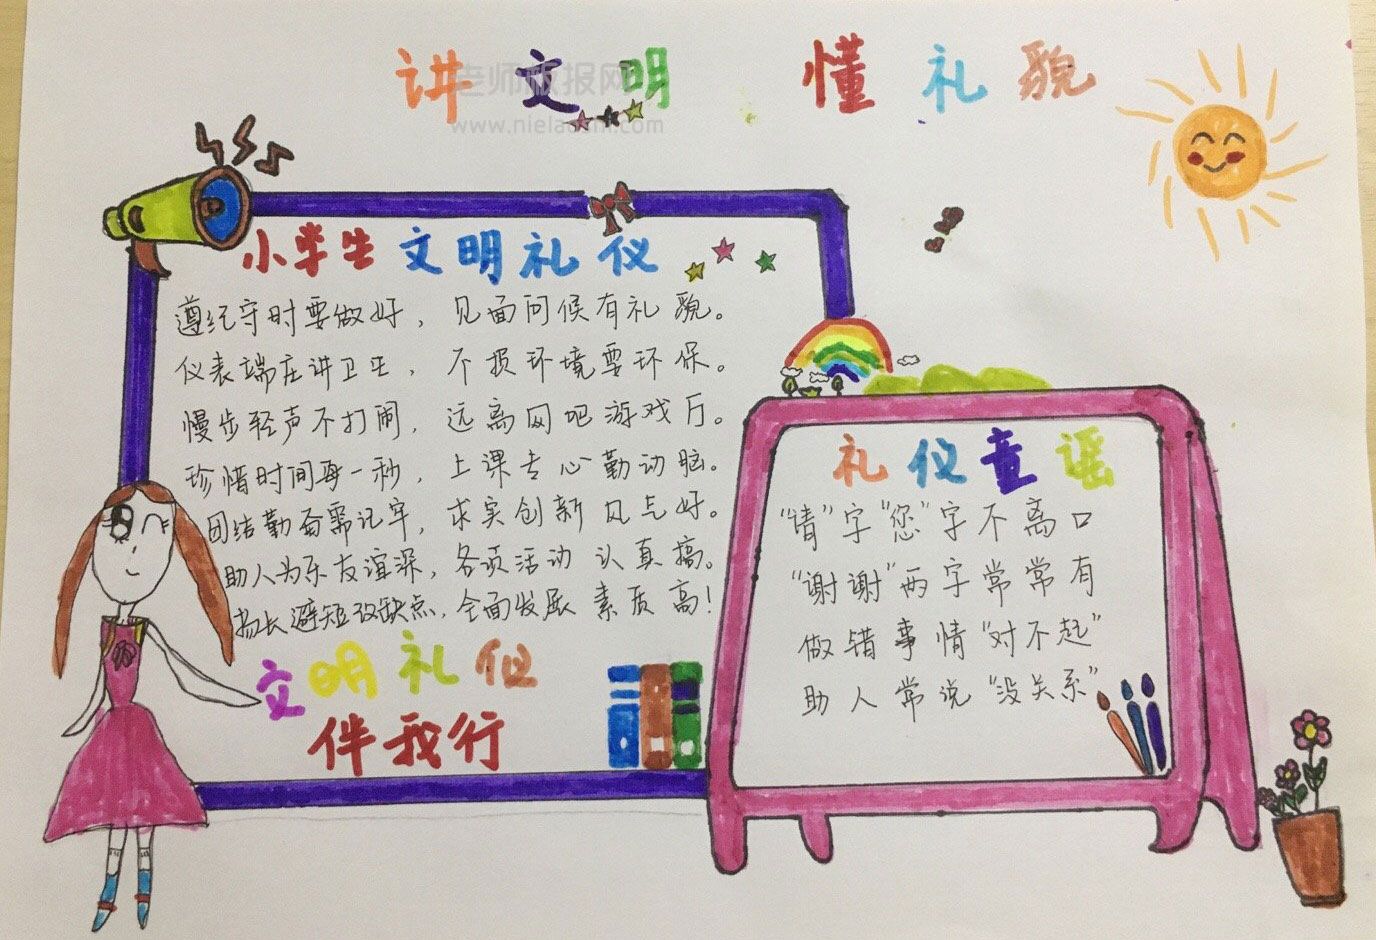 讲文明 懂礼貌
老师板报网
小学生文明礼仪
遵纪守时要做好，见面问候有礼貌。
仪表端庄讲卫生，不损环境要环保。
慢步轻声不打闹，远离网吧游戏厅。
珍惜时间每一秒，上课专心勤动脑。
团结勤奋需记牢，求实创新风气好。
助人为乐友谊深，各项活动认真搞。
扬长避短改缺点，全面发展素质高！
文明礼仪
伴我行
礼仪童谣
“请”字“您”字不离口
“谢谢”两字常常有
做错事情“对不起”
助人常说“没关系”